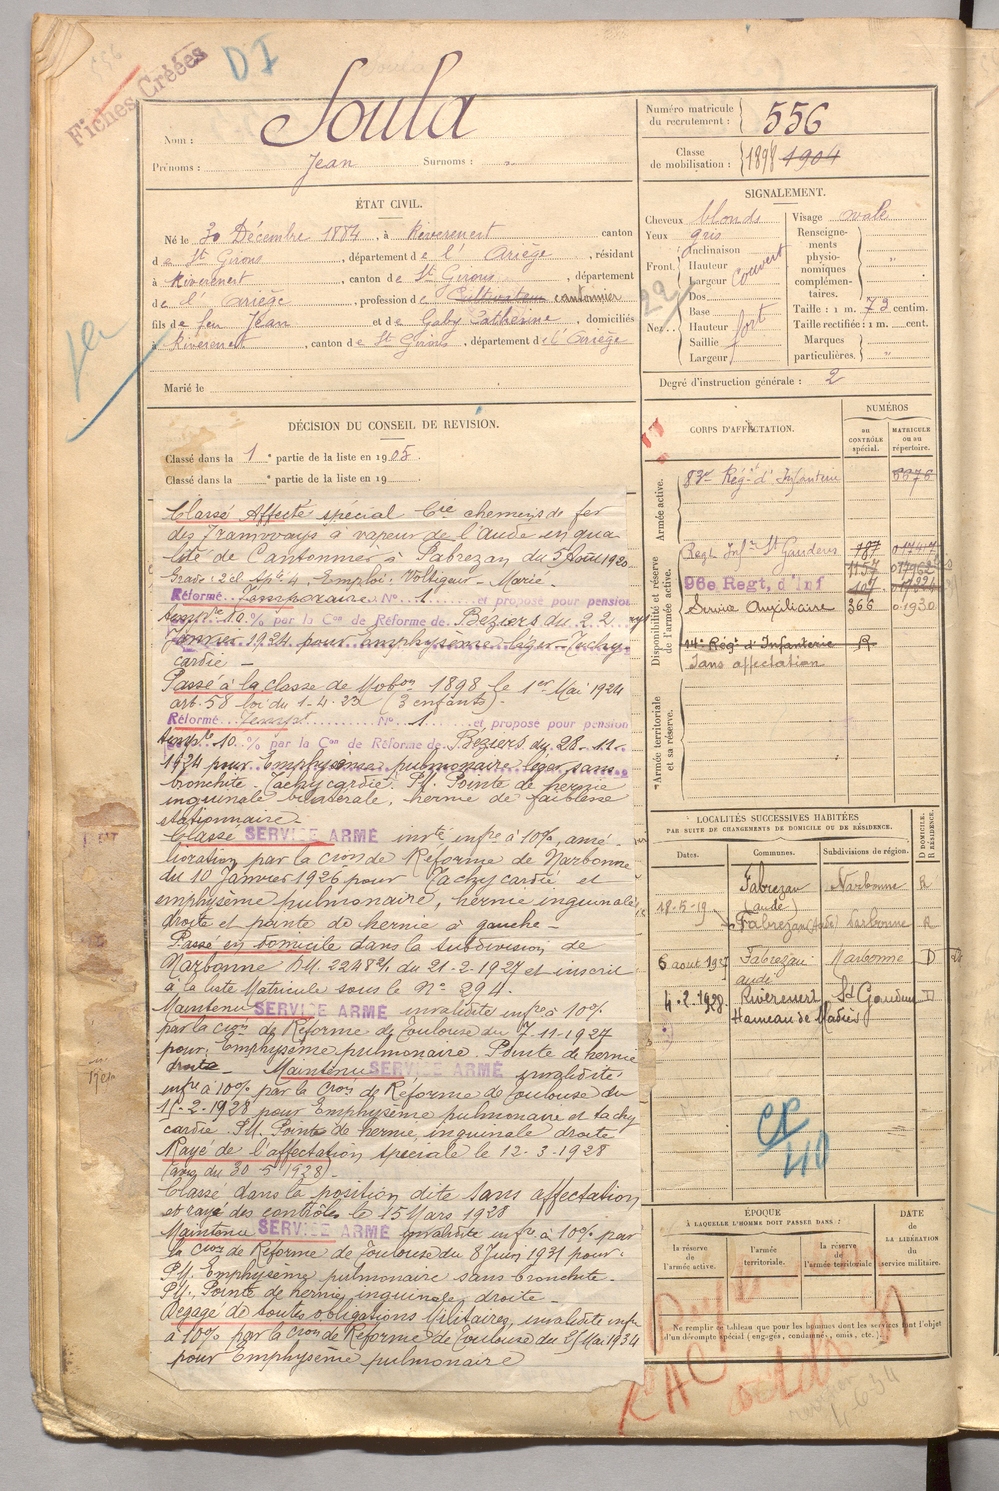 Fiches Créées
D I
Nom : Soula
Prénoms : Jean Surnoms : "
Numéro matricule du recrutement : 556
Classe de mobilisation : 1898 1904
ÉTAT CIVIL.
Né le 30 Décembre 1884, à Rivèrenert canton
de St Girons, département de l'Ariège, résidant
à Rivèrenert, canton de St Girons, département
de l'Ariège, profession de Cultivateur cantonnier
fils de feu Jean et de Gaby Catherine, domiciliés
à Rivèrenert, canton de St Girons, département de l'Ariège
Marié le
SIGNALEMENT.
Cheveux blonds
Yeux gris
Front Inclinaison
Hauteur
Largeur
couvert
Nez Dos
Base
Hauteur
Saillie
Largeur
fort
Visage ovale
Renseignements physionomiques complémentaires. "
Taille : 1 m. 73 centim.
Taille rectifiée : 1 m. cent.
Marques particulières. "
Degré d'instruction générale : 2
DÉCISION DU CONSEIL DE REVISION.
Classé dans la 1e partie de la liste en 1905.
Classé dans la e partie de la liste en 19
Classé Affecté spécial Cie chemins de fer
des Tramways à vapeur de l'Aude en qua
lité de Cantonnier à Fabrezan du 5 Août 1920
Grade : 2cl Emploi : Voltigeur - Marié.
Réformé Temporaire No 1 et proposé pour pension
temp 10 % par la Con de Réforme de Béziers du 22
Janvier 1924 pour emphysème léger - Tachy
cardie -
Passé à la classe de Mobon 1898 le 1er Mai 1924
art. 58 loi du 1.4.23 (3 enfants).
Réformé Tempre No 1 et proposé pour pension
temp 10 % par la Con de Réforme de Béziers du 28-11-
1924 pour Emphysème pulmonaire léger sans
bronchite. Tachycardie. P.U. Pointe de hernie
inguinale bilatérale, hernie de faiblesse
stationnaire -
Classé SERVICE ARMÉ invté infre à 10%, amé
lioration par la cion de Réforme de Narbonne
du 10 Janvier 1926 pour Tachycardie et
emphysème pulmonaire, hernie inguinale
droite et pointe de hernie à gauche -
Passé en domicile dans la subdivision de
Narbonne du 21-2-1927 et inscrit
à la liste Matricule sous le No 294.
Maintenu SERVICE ARMÉ invalidité infre à 10%
par la cion de Réforme de Toulouse du 7-11-1927
pour : Emphysème pulmonaire. Pointe de hernie
droite - Maintenu SERVICE ARMÉ invalidité
infre à 10% par la Cion de Réforme de Toulouse du
-2-1928 pour Emphysème pulmonaire et tachy
cardie. P.U. Pointe de hernie inguinale droite
Rayé de l'affectation spéciale le 12-3-1928
(avis du 30-5-1928)
Classé dans la position dite sans affectation
et rayé des contrôles le 15 Mars 1928
Maintenu SERVICE ARMÉ invalidité infre à 10% par
la Cion de Réforme de Toulouse du 8 Juin 1931 pour :
P.U. Emphysème pulmonaire sans bronchite -
P.U. Pointe de hernie inguinale droite -
Dégagé de toutes obligations Militaires, invalidité infre
à 10% par la Cion de Réforme de Toulouse du Mai 1934
pour Emphysème pulmonaire
CORPS D'AFFECTATION.
NUMÉROS
au CONTRÔLE spécial.
MATRICULE ou au répertoire.
Armée active.
83e Régt d'Infanterie 5376
Disponibilité et réserve de l'armée active.
Regt Infie St Gaudens 187 017417
1157
96e Regt, d'Inf 107
Service Auxiliaire 366 01930
14e Régt d'Infanterie R
Sans affectation
Armée territoriale et sa réserve.
LOCALITÉS SUCCESSIVES HABITÉES
PAR SUITE DE CHANGEMENTS DE DOMICILE OU DE RÉSIDENCE.
Dates. Communes. Subdivisions de région. D DOMICILE. R RÉSIDENCE.
Fabrezan (Aude) Narbonne R
18-5-19 Fabrezan (Aude) Narbonne R
6 aout 1927 Fabrezan aude Narbonne D
4-2-1928 Rivèrenert St Gaudens D
Hameau de
CR
40
ÉPOQUE
À LAQUELLE L'HOMME DOIT PASSER DANS :
la réserve de l'armée active.
l'armée territoriale.
la réserve de l'armée territoriale
DATE de LA LIBÉRATION du service militaire.
Ne remplir ce tableau que pour les hommes dont les services font l'objet
d'un décompte spécial (engagés, condamnés, omis, etc.)